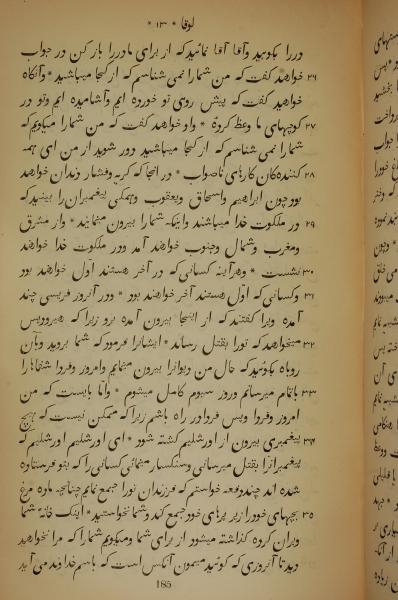 لوقا * ۱۳ *
دررا بکوبید وآقا آقا نمائید که از برای مادررا باز کن در جواب
۲۶ خواهد گفت که من شمارا نمی شناسم که از کجا میباشید * وآنگاه
خواهید گفت که پیش روی تو خورده ایم وآشامیده ایم وتو در
۲۷ کوچهای ما وعظ کردهٔ * واو خواهد گفت که من شمارا میگویم که
شمارا نمی شناسم که از کجا میباشید دور شوید از من ای همه
۲۸ کنندهکان کارهای ناصواب * در انجا که گریه وفشار دندان خواهد
بود چون ابراهیم واسحاق ویعقوب وهمگی پیغمبران را بینید که
۲۹ در ملکوت خدا میباشند واینکه شمارا بیرون مینمایند * واز مشرق
ومغرب وشمال وجنوب خواهند آمد ودر ملکوت خدا خواهند
۳۰ نشست * وهرآینه کسانی که در آخر هستند اوّل خواهند بود
۳۱ وکسانی که اوّل هستند آخر خواهند بود * ودر آنروز فریسی چند
آمده ویرا گفتند که از اینجا بیرون آمده برو زیرا که هیرودیس
۳۲ میخواهد که تورا بقتل رساند * ایشانرا فرمود که شما بروید وبآن
روباه بگوئید که حال من دیوانرا بیرون مینمایم وامروز وفردا شفاهارا
۳۳ باتمام میرسانم وروز سیوم کامل میشوم * وامّا بایست که من
امروز وفردا وپس فردا در راه باشم زیرا که ممکن نیست که هیچ
۳۴ پیغمبری بیرون از اورشلیم کشته شود * ای اورشلیم اورشلیم که
پیغمبرانرا بقتل میرسانی وسنگسار مینمائی کسانی را که بتو فرستاده
شده اند چند دفعه خواستم که فرزندان تورا جمع نمایم چنانچه ماده مرغ
۳۵ بچهای خودرا زیر پرهای خود جمع کند وشما نخواستید * اینک خانهٔ شما
ویران کرده گذاشته میشود از برای شما ومیگویم شمارا که مرا نخواهید
دید تا آنروزی که گوئید میمون آنکس است که باسم خداوند می آید
185